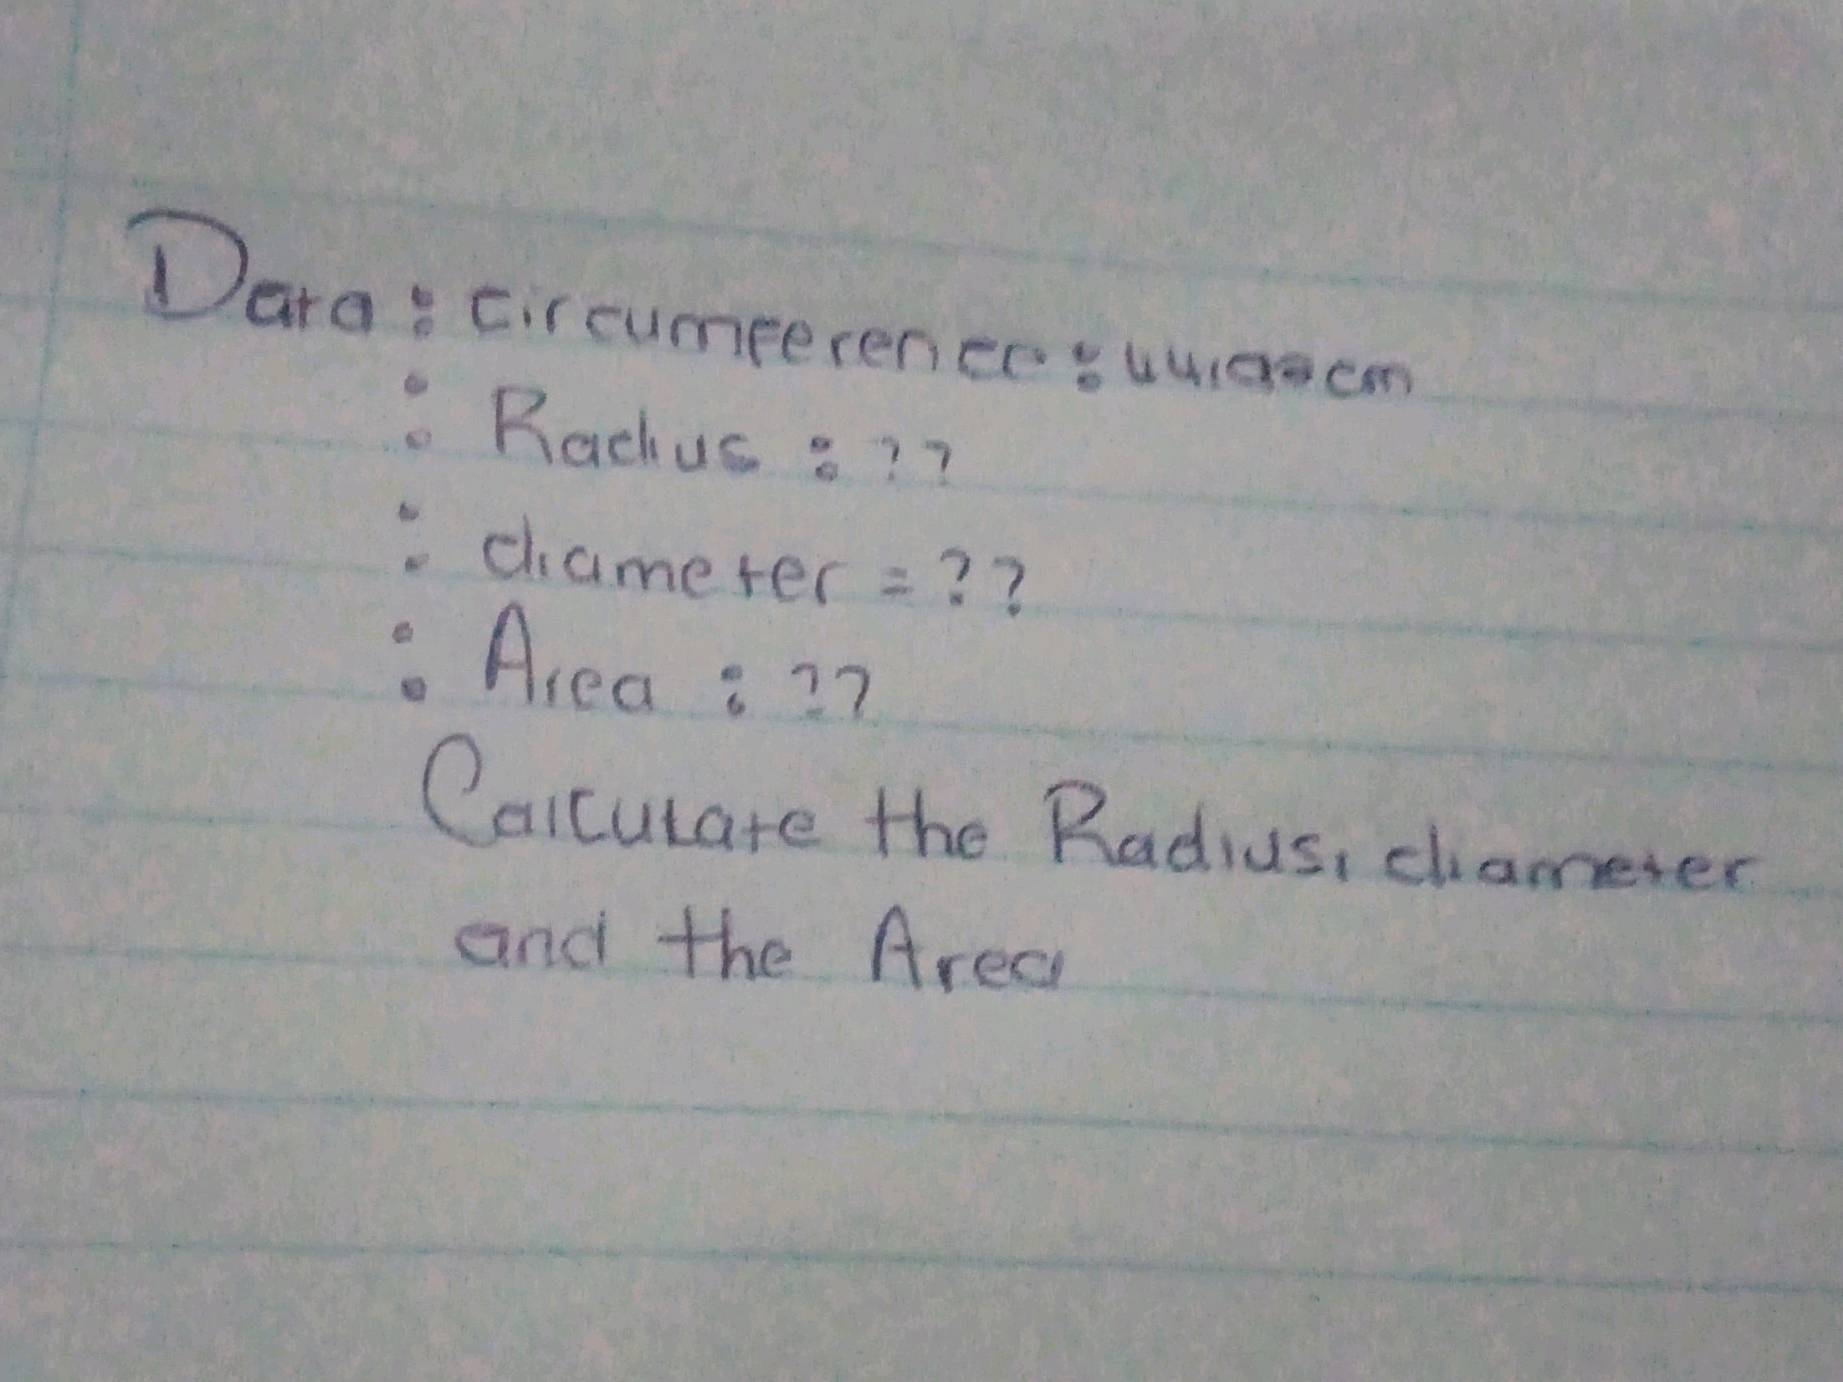 Data : circumference : cm
: Radius : ??
: diameter = ??
: Area : ??
Calculate the Radius, diameter
and the Area